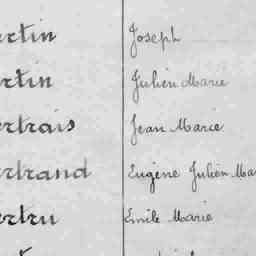 ertin Joseph
rtin Julien Marie
ertrais Jean Marie
ertrand Eugène Julien Ma
ertru Emile Marie